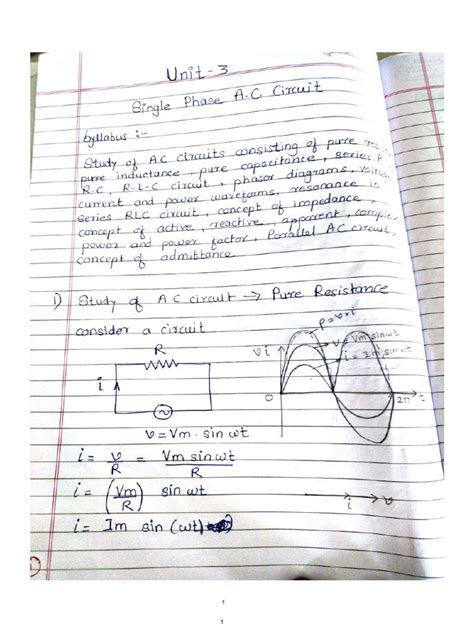 Unit-3
Single Phase A.C. Circuit
Syllabus :-
Study of AC circuits consisting of pure
pure inductance, pure capacitance, series
R-C, R-L-C circuit, phasor diagrams,
current and power waveforms, resonance in
series RLC circuit, concept of impedance,
concept of active, reactive, apparent, complex
power and power factor, Parallel AC circuit,
concept of admittance.
1) Study of AC circuit → Pure Resistance
consider a circuit
R
i
v = Vm . sin ωt
v i
P = v×i
v = Vm sin ωt
i = Im sin ωt
0
2π
t
i = v/R = Vm sin ωt / R
i = (Vm/R) sin ωt
i = Im sin (ωt)
i
v
1
1